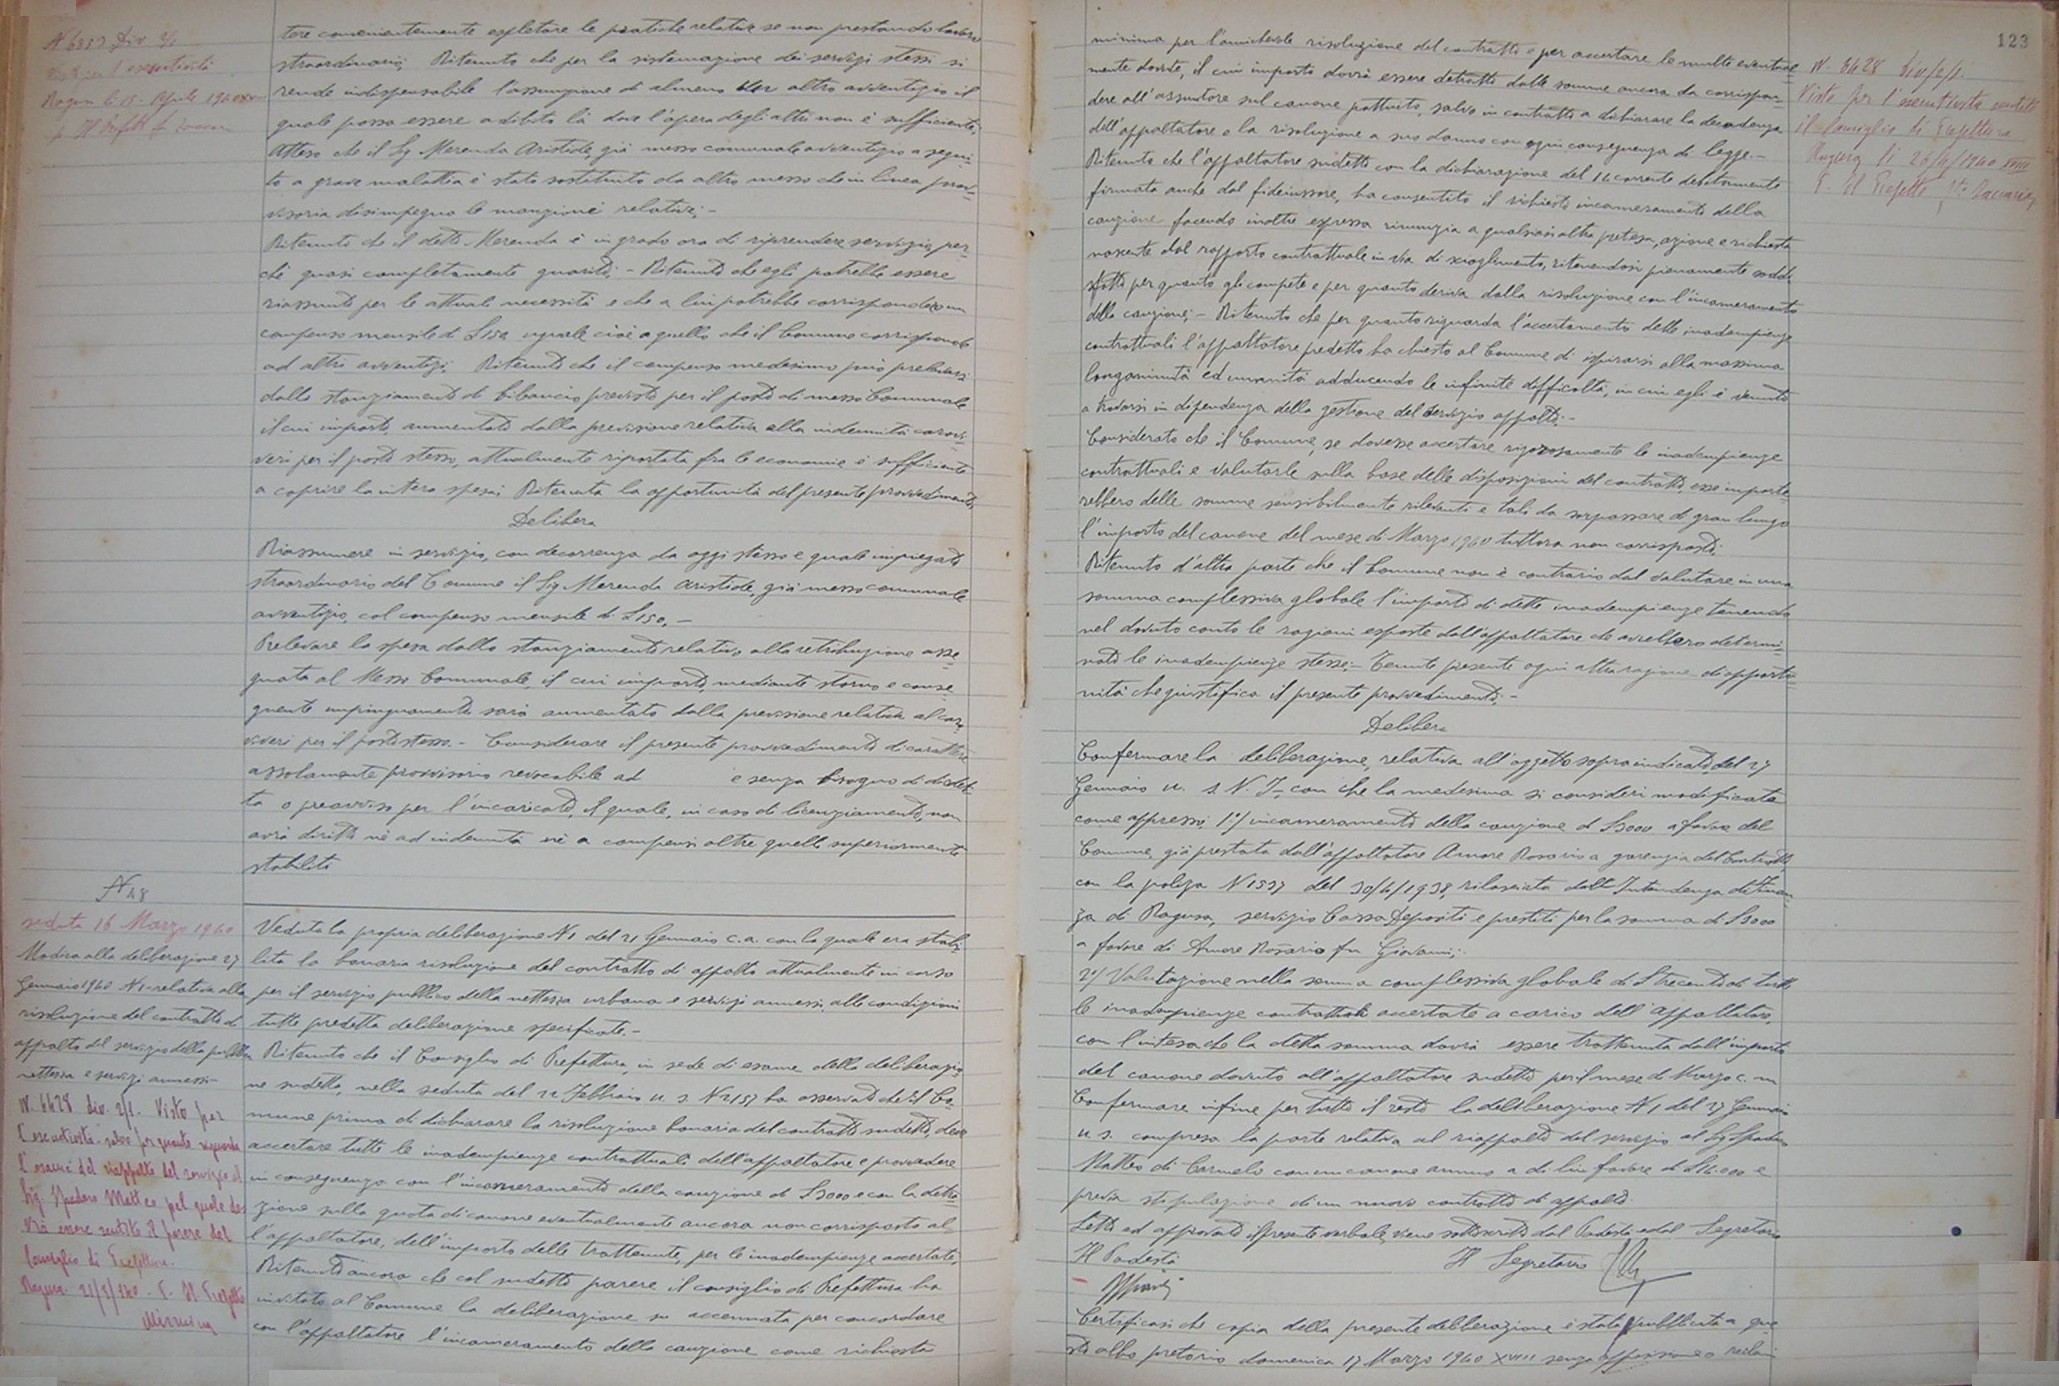 N 6853 Div 2/1
Visto per l'esecutività
Ragusa li 15 - Aprile 1940 XVIII
p. Il Prefetto f.
tere convenientemente espletare le pratiche relative se non prestando lavoro
straordinario; Ritenuto che per la sistemazione dei servizi stessi si
rende indispensabile l'assunzione di almeno un altro avventizio il
quale possa essere adibito là dove l'opera degli altri non è sufficiente;
Atteso che il Sig. Merenda Aristide, già messo comunale avventizio a segui-
to a grave malattia è stato sostituito da altro messo che in linea prov-
visoria disimpegna le mansioni relative; -
Ritenuto che il detto Merenda è in grado ora di riprendere servizio, per-
chè quasi completamente guarito; - Ritenuto che egli potrebbe essere
riassunto per le attuali necessità e che a lui potrebbe corrispondersi un
compenso mensile di £ 150 uguale cioè a quello che il Comune corrisponde
ad altri avventizi; Ritenuto che il compenso medesimo può prelevarsi
dallo stanziamento di bilancio previsto per il posto di messo Comunale
il cui importo, aumentato dalla previsione relativa alla indennità carovi-
veri per il posto stesso, attualmente riportata fra le economie è sufficiente
a coprire la intera spesa; Ritenuta la opportunità del presente provvedimento;
Delibera
Riassumere in servizio, con decorrenza da oggi stesso e quale impiegato
straordinario del Comune il Sig. Merenda Aristide, già messo comunale
avventizio, col compenso mensile di £ 150. -
Prelevare la spesa dallo stanziamento relativo alla retribuzione asse-
gnata al Messo Comunale, il cui importo, mediante storno e conse-
guente impinguamento sarà aumentato dalla previsione relativa al caro
viveri per il posto stesso. - Considerare il presente provvedimento di carattere
assolutamente provvisorio revocabile ad e senza bisogno di disdet-
ta o preavviso per l'incaricato, il quale, in caso di licenziamento, non
avrà diritto nè ad indennità nè a compensi oltre quelli superiormente
stabiliti
N 48
seduta 16 Marzo 1940
Modica alla deliberazione 27
Gennaio 1940 N 1 - relativa alla
risoluzione del contratto di
appalto del servizio della pubblica
nettezza e servizi annessi -
N. 6428 div. 2/1. Visto per
l'esecutività - salvo per quanto riguarda
l'esame del riappalto del servizio al
Sig. Spadaro Matteo pel quale do-
vrà essere sentito il parere del
Consiglio di Prefettura.
Ragusa 21/3/940 - F. Il Prefetto
Veduta la propria deliberazione N 1 del 21 Gennaio c.a. con la quale era stabi-
lita la bonaria risoluzione del contratto di appalto attualmente in corso
per il servizio pubblico della nettezza urbana e servizi annessi, alle condizioni
tutte predetta deliberazione specificate. -
Ritenuto che il Consiglio di Prefettura, in sede di esame della deliberazio-
ne sudetta, nella seduta del 22 Febbraio u. s. N 2157 ha osservato che il Co-
mune prima di dichiarare la risoluzione bonaria del contratto sudetto, deve
accertare tutte le inadempienze contrattuali dell'appaltatore e provvedere
in conseguenza con l'incameramento della cauzione di £ 3000 e con la detra-
zione sulla quota di canone eventualmente ancora non corrisposto al-
l'appaltatore, dell'importo delle trattenute, per le inadempienze accertate,
Ritenuto ancora che col sudetto parere il consiglio di Prefettura ha
invitato al Comune la deliberazione su accennata per concordare
con l'appaltatore l'incameramento della cauzione come richiesta
123
minima per l'amichevole risoluzione del contratto e per accertare le multe eventual-
mente dovute, il cui importo dovrà essere detratto dalle somme ancora da corrispon-
dere all'assuntore sul canone pattuito, salvo in contratto a dichiarare la decadenza
dell'appaltatore e la risoluzione a suo danno con ogni conseguenza di legge. -
Ritenuto che l'appaltatore sudetto con la dichiarazione del 14 corrente debitamente
firmata anche dal fideiussore, ha consentito il richiesto incameramento della
cauzione facendo inoltre espressa rinunzia a qualsiasi altra pretesa, azione e richiesta
nascente dal rapporto contrattuale in via di scioglimento, ritenendosi pienamente soddi-
sfatto per quanto gli compete e per quanto deriva dalla risoluzione con l'incameramento
della cauzione; - Ritenuto che per quanto riguarda l'accertamento delle inadempienze
contrattuali l'appaltatore predetto ha chiesto al Comune di ispirarsi alla massima
longanimità ed umanità adducendo le infinite difficoltà, in cui egli è venuto
a trovarsi in dipendenza della gestione del servizio appalto. -
Considerato che il Comune, se dovesse accertare rigorosamente le inadempienze
contrattuali e valutarle sulla base delle disposizioni del contratto, esse importe-
rebbero delle somme sensibilmente rilevanti e tali da sorpassare di gran lunga
l'importo del canone del mese di Marzo 1940 tuttora non corrisposto.
Ritenuto d'altra parte che il Comune non è contrario dal valutare in una
somma complessiva globale l'importo di dette inadempienze tenendo
nel dovuto conto le ragioni esposte dall'appaltatore che avrebbero determi-
nato le inadempienze stesse; - Tenute presente ogni altra ragione di opportu-
nità che giustifica il presente provvedimento; -
Delibera
Confermare la deliberazione, relativa all'oggetto sopraindicato, del 27
Gennaio u. s. N. 1 - con che la medesima si consideri modificata
come appresso: 1°/ incameramento della cauzione di £ 3000 a favore del
Comune, già prestata dall'appaltatore Amore Rosario a garenzia del Contratto,
con la polizza N 1537 del 30/4/1938, rilasciata dall'Intendenza di Finan-
za di Ragusa, servizio Cassa Depositi e prestiti per la somma di £ 3000
a favore di Amore Rosario fu Giovanni; -
2°/ Valutazione nella somma complessiva globale di £ trecento di tutte
le inadempienze contrattuali accertate a carico dell'appaltatore,
con l'intesa che la detta somma dovrà essere trattenuta dall'importo
del canone dovuto all'appaltatore sudetto per il mese di Marzo c. m
Confermare infine per tutto il resto la deliberazione N 1 del 27 Gennaio
u. s. compresa la parte relativa al riappalto del servizio al Sig. Spadaro
Matteo di Carmelo con un canone annuo a di lui favore di £ 14.000 e
previa stipulazione di un nuovo contratto di appalto.
Letto ed approvato il presente verbale, viene sottoscritto dal Podestà e dal Segretario
Il Podestà Il Segretario
Certificasi che copia della presente deliberazione è stata pubblicata a que-
sto albo pretorio domenica 17 Marzo 1940 XVIII senza opposizione o reclami
N. 6428 Div/2/1.
Visto per l'esecutività sentito
il Consiglio di Prefettura
Ragusa lì 26/4/1940 XVIII
F. Il Prefetto